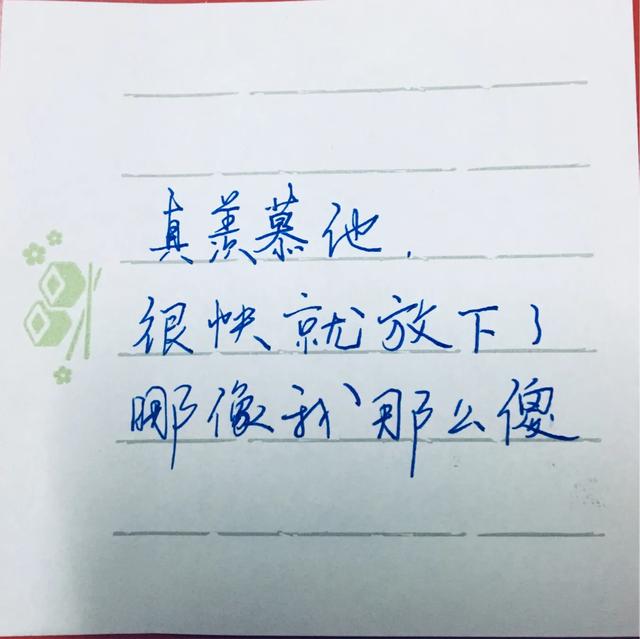 真羡慕他,
很快就放下了
哪像我那么傻